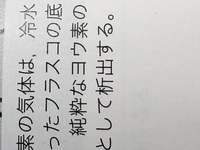 素の気体は、冷水
ったフラスコの底
純粋なヨウ素の
として析出する。